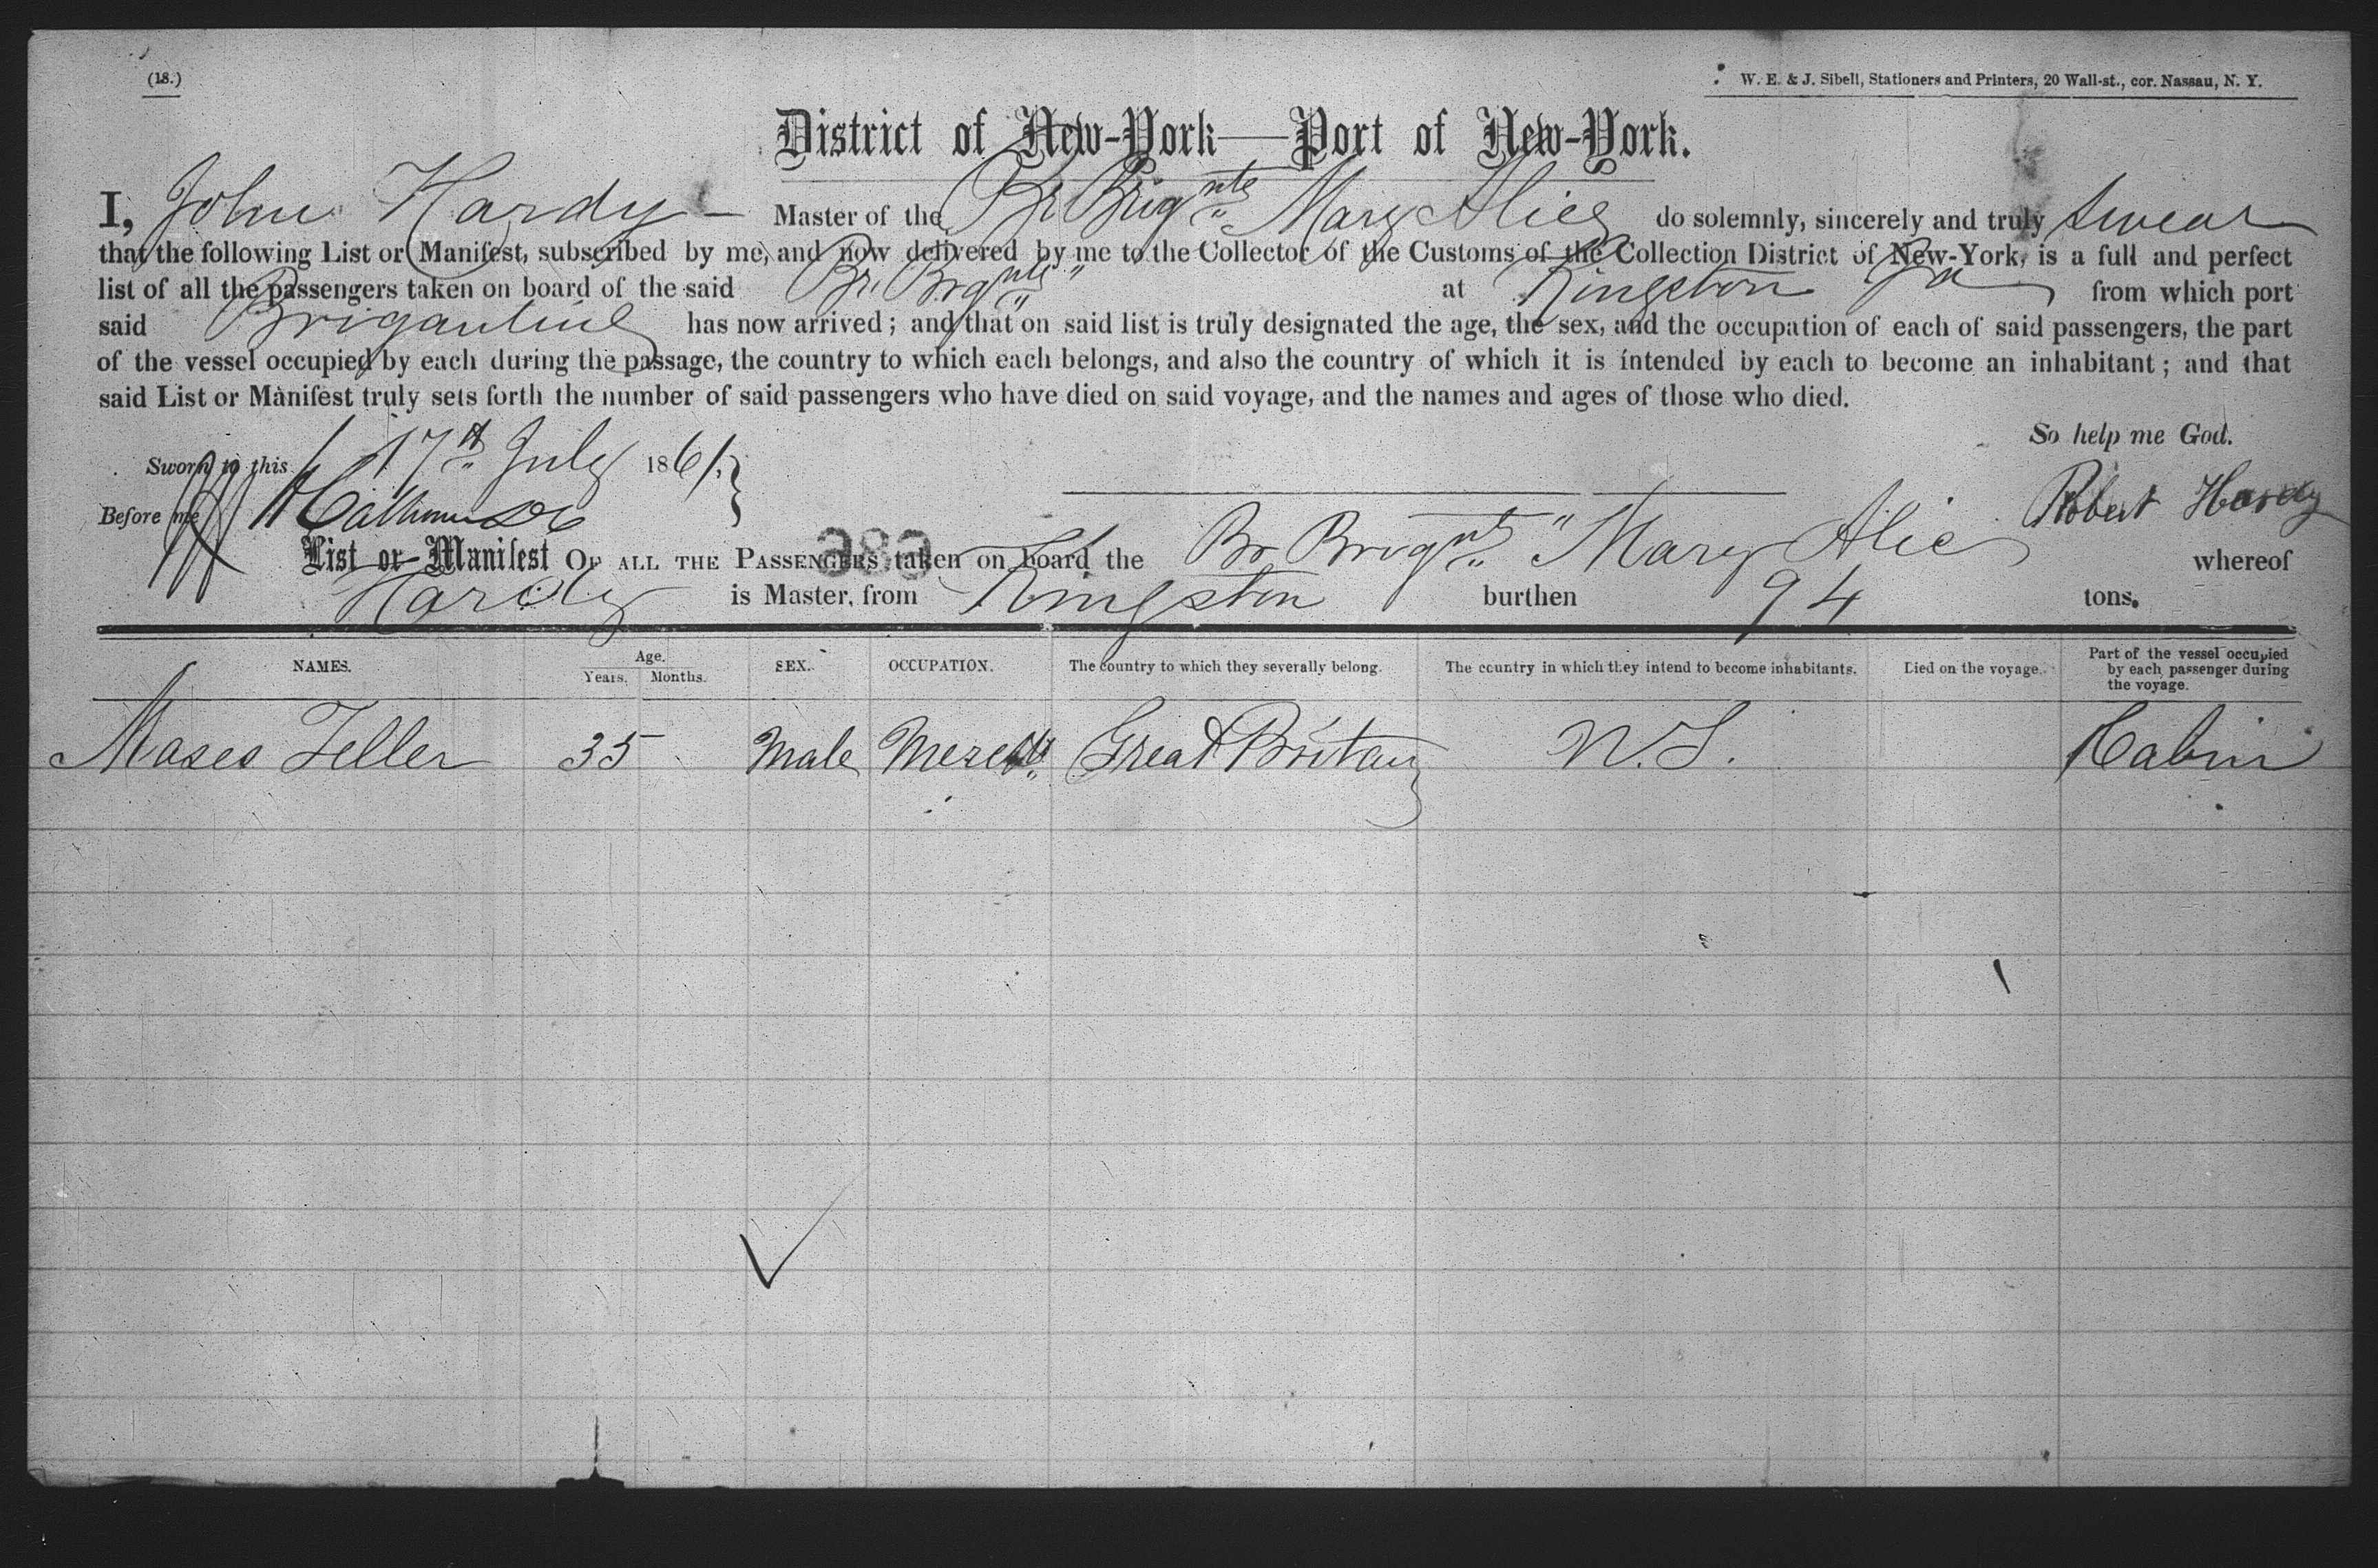 (18.)
W. E. & J. Sibell, Stationers and Printers, 20 Wall-st., cor. Nassau, N. Y.
District of New-York—Port of New-York.
I, John Hardy – Master of the Br Brignte Mary Alice do solemnly, sincerely and truly swear
that the following List or Manifest, subscribed by me, and now delivered by me to the Collector of the Customs of the Collection District of New-York, is a full and perfect
list of all the passengers taken on board of the said Br. Brgnte at Kingston Ja from which port
said Brigantine has now arrived; and that on said list is truly designated the age, the sex, and the occupation of each of said passengers, the part
of the vessel occupied by each during the passage, the country to which each belongs, and also the country of which it is intended by each to become an inhabitant; and that
said List or Manifest truly sets forth the number of said passengers who have died on said voyage, and the names and ages of those who died.
So help me God.
Sworn to this 17th July 1861.
Before me
Robert Hardy
List or Manifest OF ALL THE PASSENGERS taken on board the Br Brignt "Mary Alice whereof
Hardy is Master, from Kingston burthen 94 tons.
NAMES. Age. Years. Months. SEX. OCCUPATION. The country to which they severally belong. The country in which they intend to become inhabitants. Died on the voyage. Part of the vessel occupied by each passenger during the voyage.
Moses Feller 35 Male Great Britain N.S. Cabin